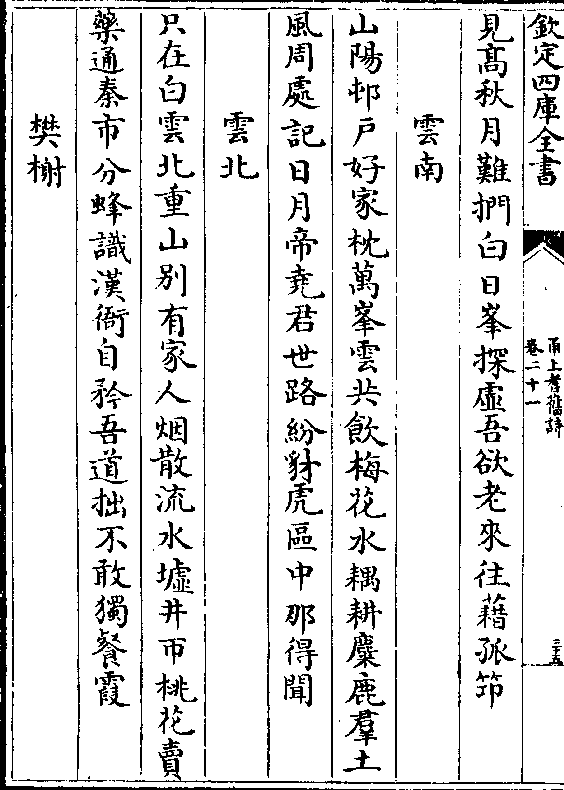 欽定四庫全書
甬上耆舊詩
卷二十一
三十五
見髙秋月難捫白日峯探虚吾欲老來往藉孤筇
雲南
山陽邨戸好家枕萬峯雲共飲梅花水耦耕麋鹿羣土
風周處記日月帝堯君世路紛豺虎區中那得聞
雲北
只在白雲北重山别有家人烟散流水墟井帀桃花賣
藥通秦市分蜂識漢衙自矜吾道拙不敢獨餐霞
樊榭